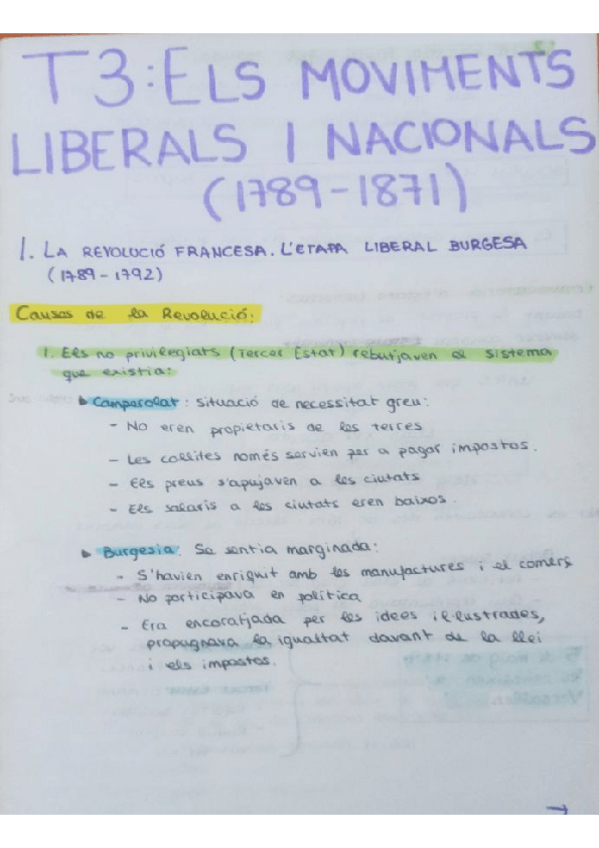 T3: ELS MOVIMENTS
LIBERALS I NACIONALS
(1789-1871)
1. LA REVOLUCIÓ FRANCESA. L'ETAPA LIBERAL BURGESA
(1789-1792)
Causes de la Revolució:
1. Els no privilegiats (Tercer Estat) rebutjaven el sistema
que existia:
Camperolat: situació de necessitat greu:
- No eren propietaris de les terres
- Les collites només servien per a pagar impostos.
- Els preus s'apujaven a les ciutats
- Els salaris a les ciutats eren baixos.
Burgesia: Se sentia marginada:
- S'havien enriquit amb les manufactures i el comerç
- No participava en política
- Era encoratjada per les idees il·lustrades,
propagnava la igualtat davant de la llei
i els impostos.